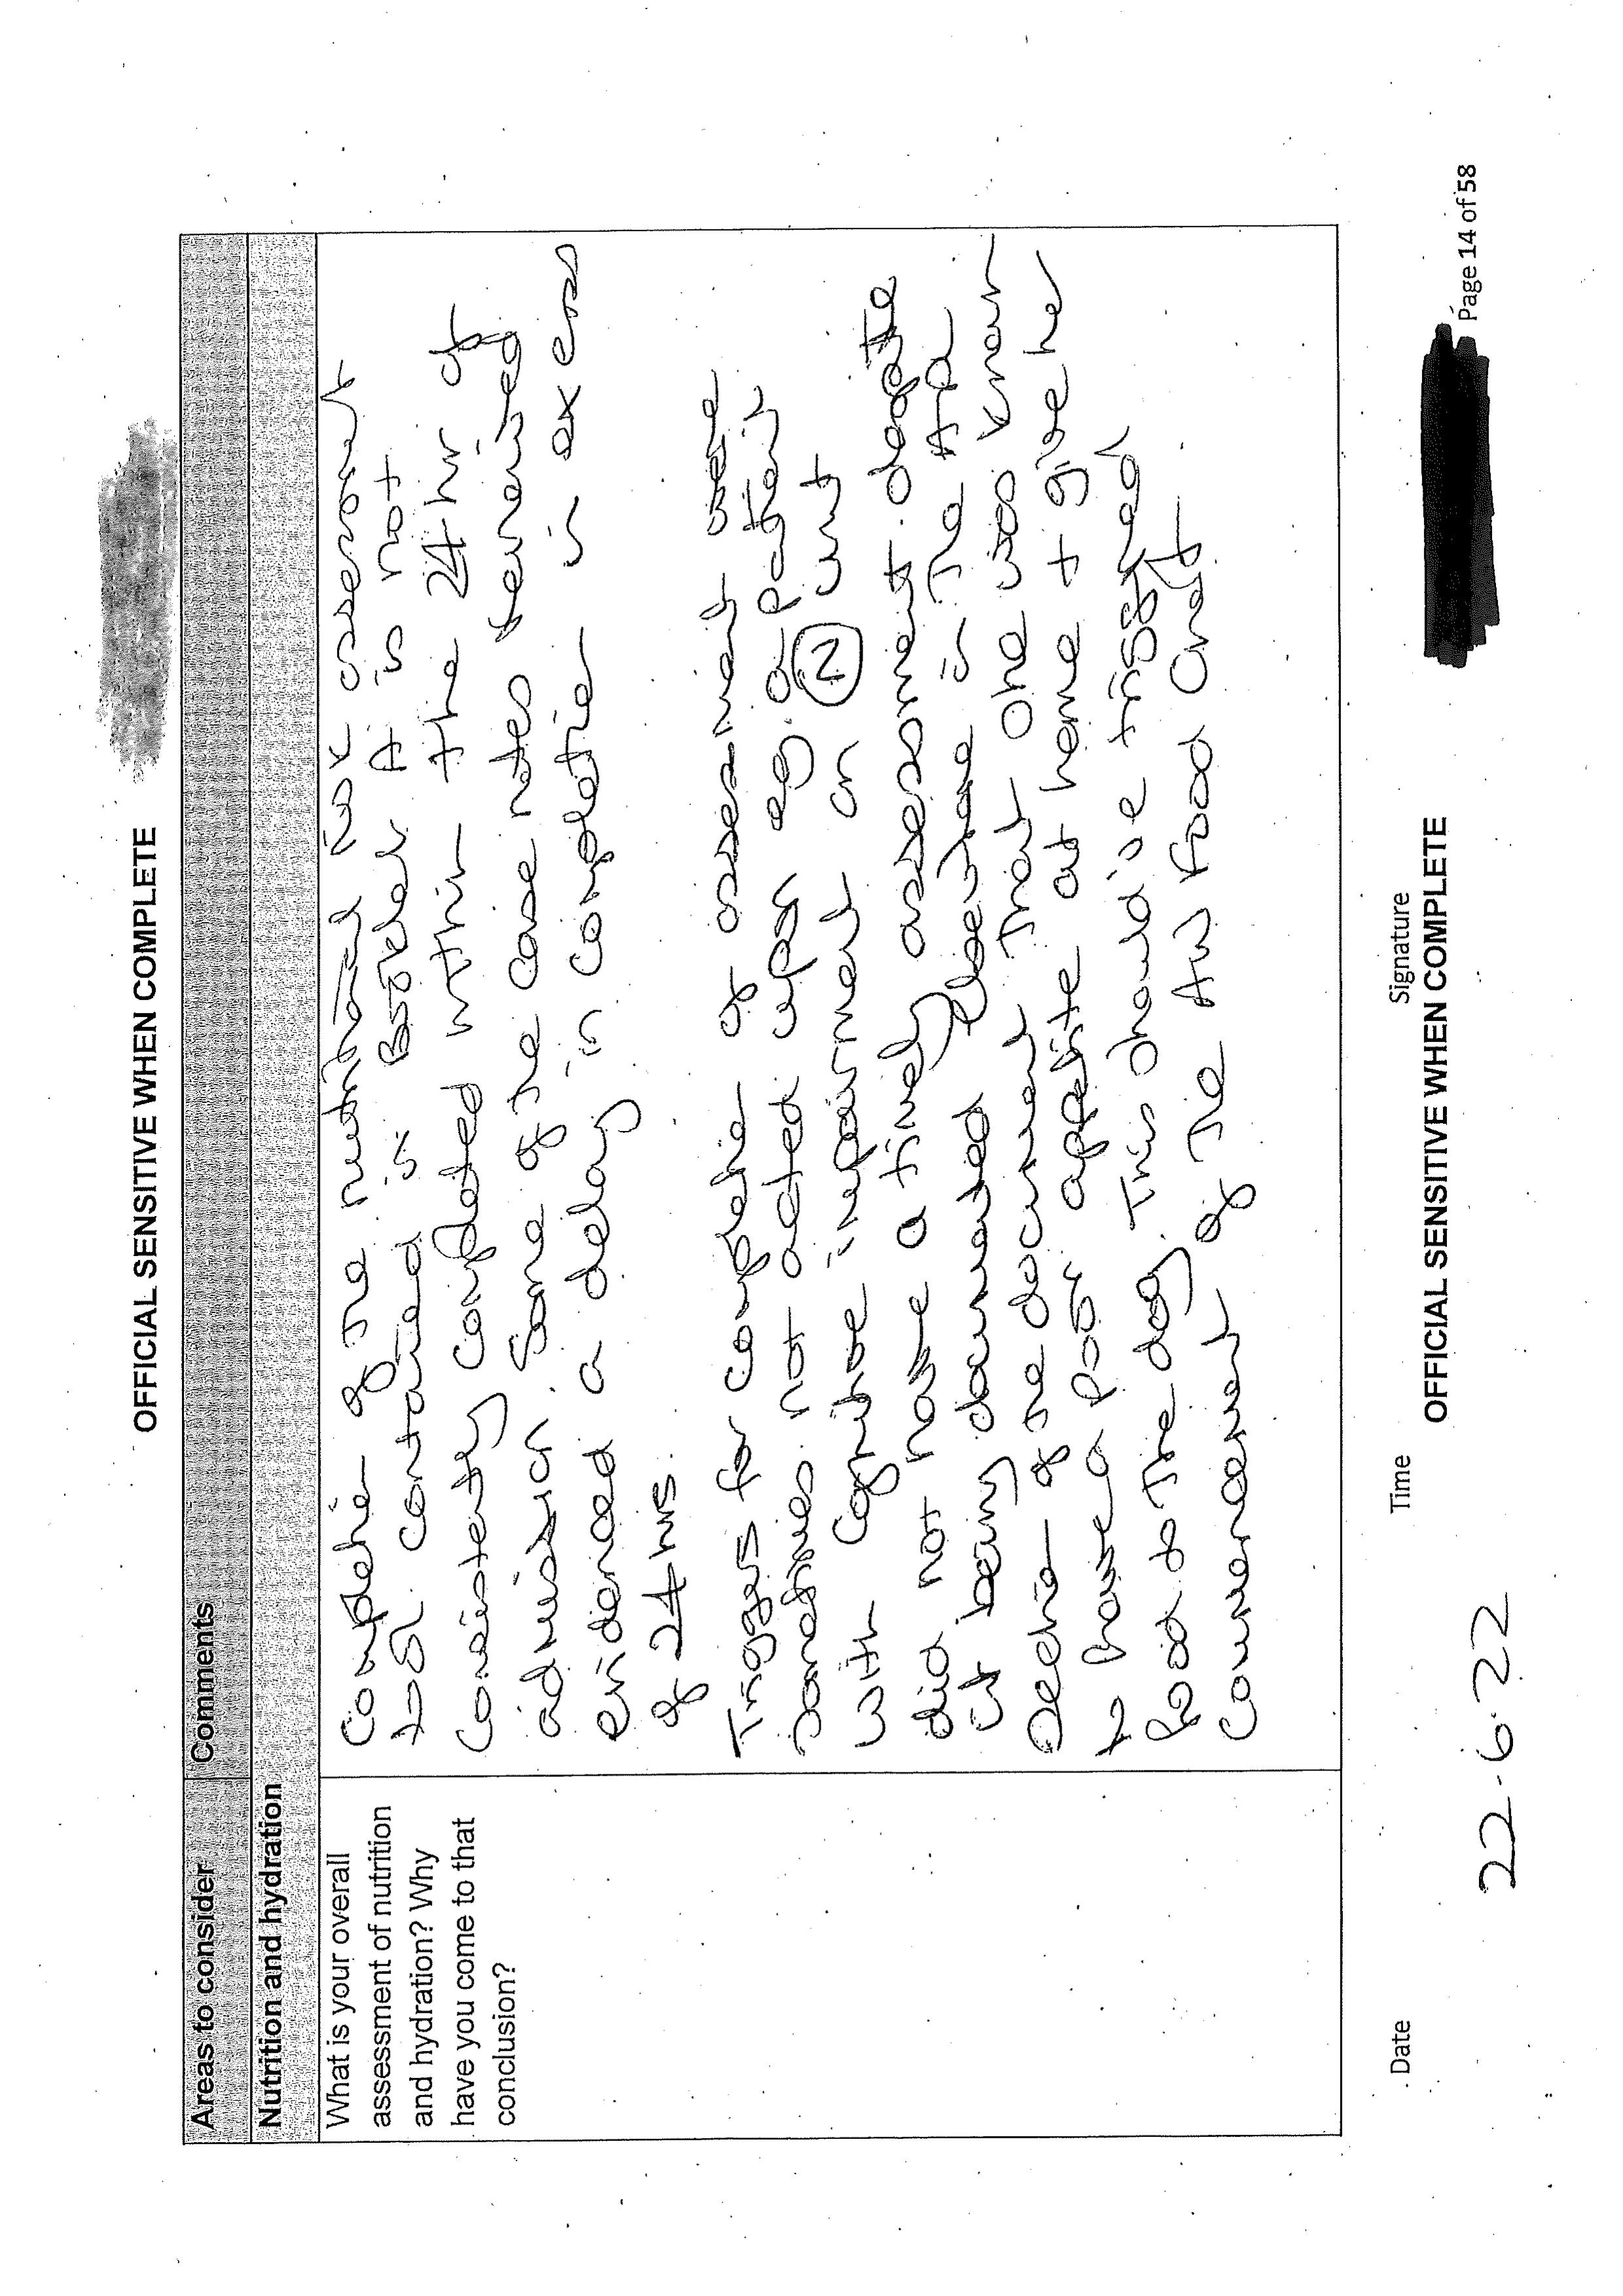 OFFICIAL SENSITIVE WHEN COMPLETE
Areas to consider Comments
Nutrition and hydration
What is your overall
assessment of nutrition
and hydration? Why
have you come to that
conclusion?
Completion of the nutritional risk assessment
tool contained in Booklet A is not
consistently completed within the 24hr of
admission. Some of the case notes reviewed
evidenced a delay in completion in excess
of 24hrs.
Triggers for completion of assessment were
sometimes not acted upon eg. a patient
with cognitive impairment on (2) unit
did not have a timely assessment despite
it being documented elsewhere in the
section of the document that she was known
to have a poor appetite at home + give her
food to the dog. This should've triggered
commencement of the All Food Chart
Date Time Signature
OFFICIAL SENSITIVE WHEN COMPLETE
Page 14 of 58
22.6.22